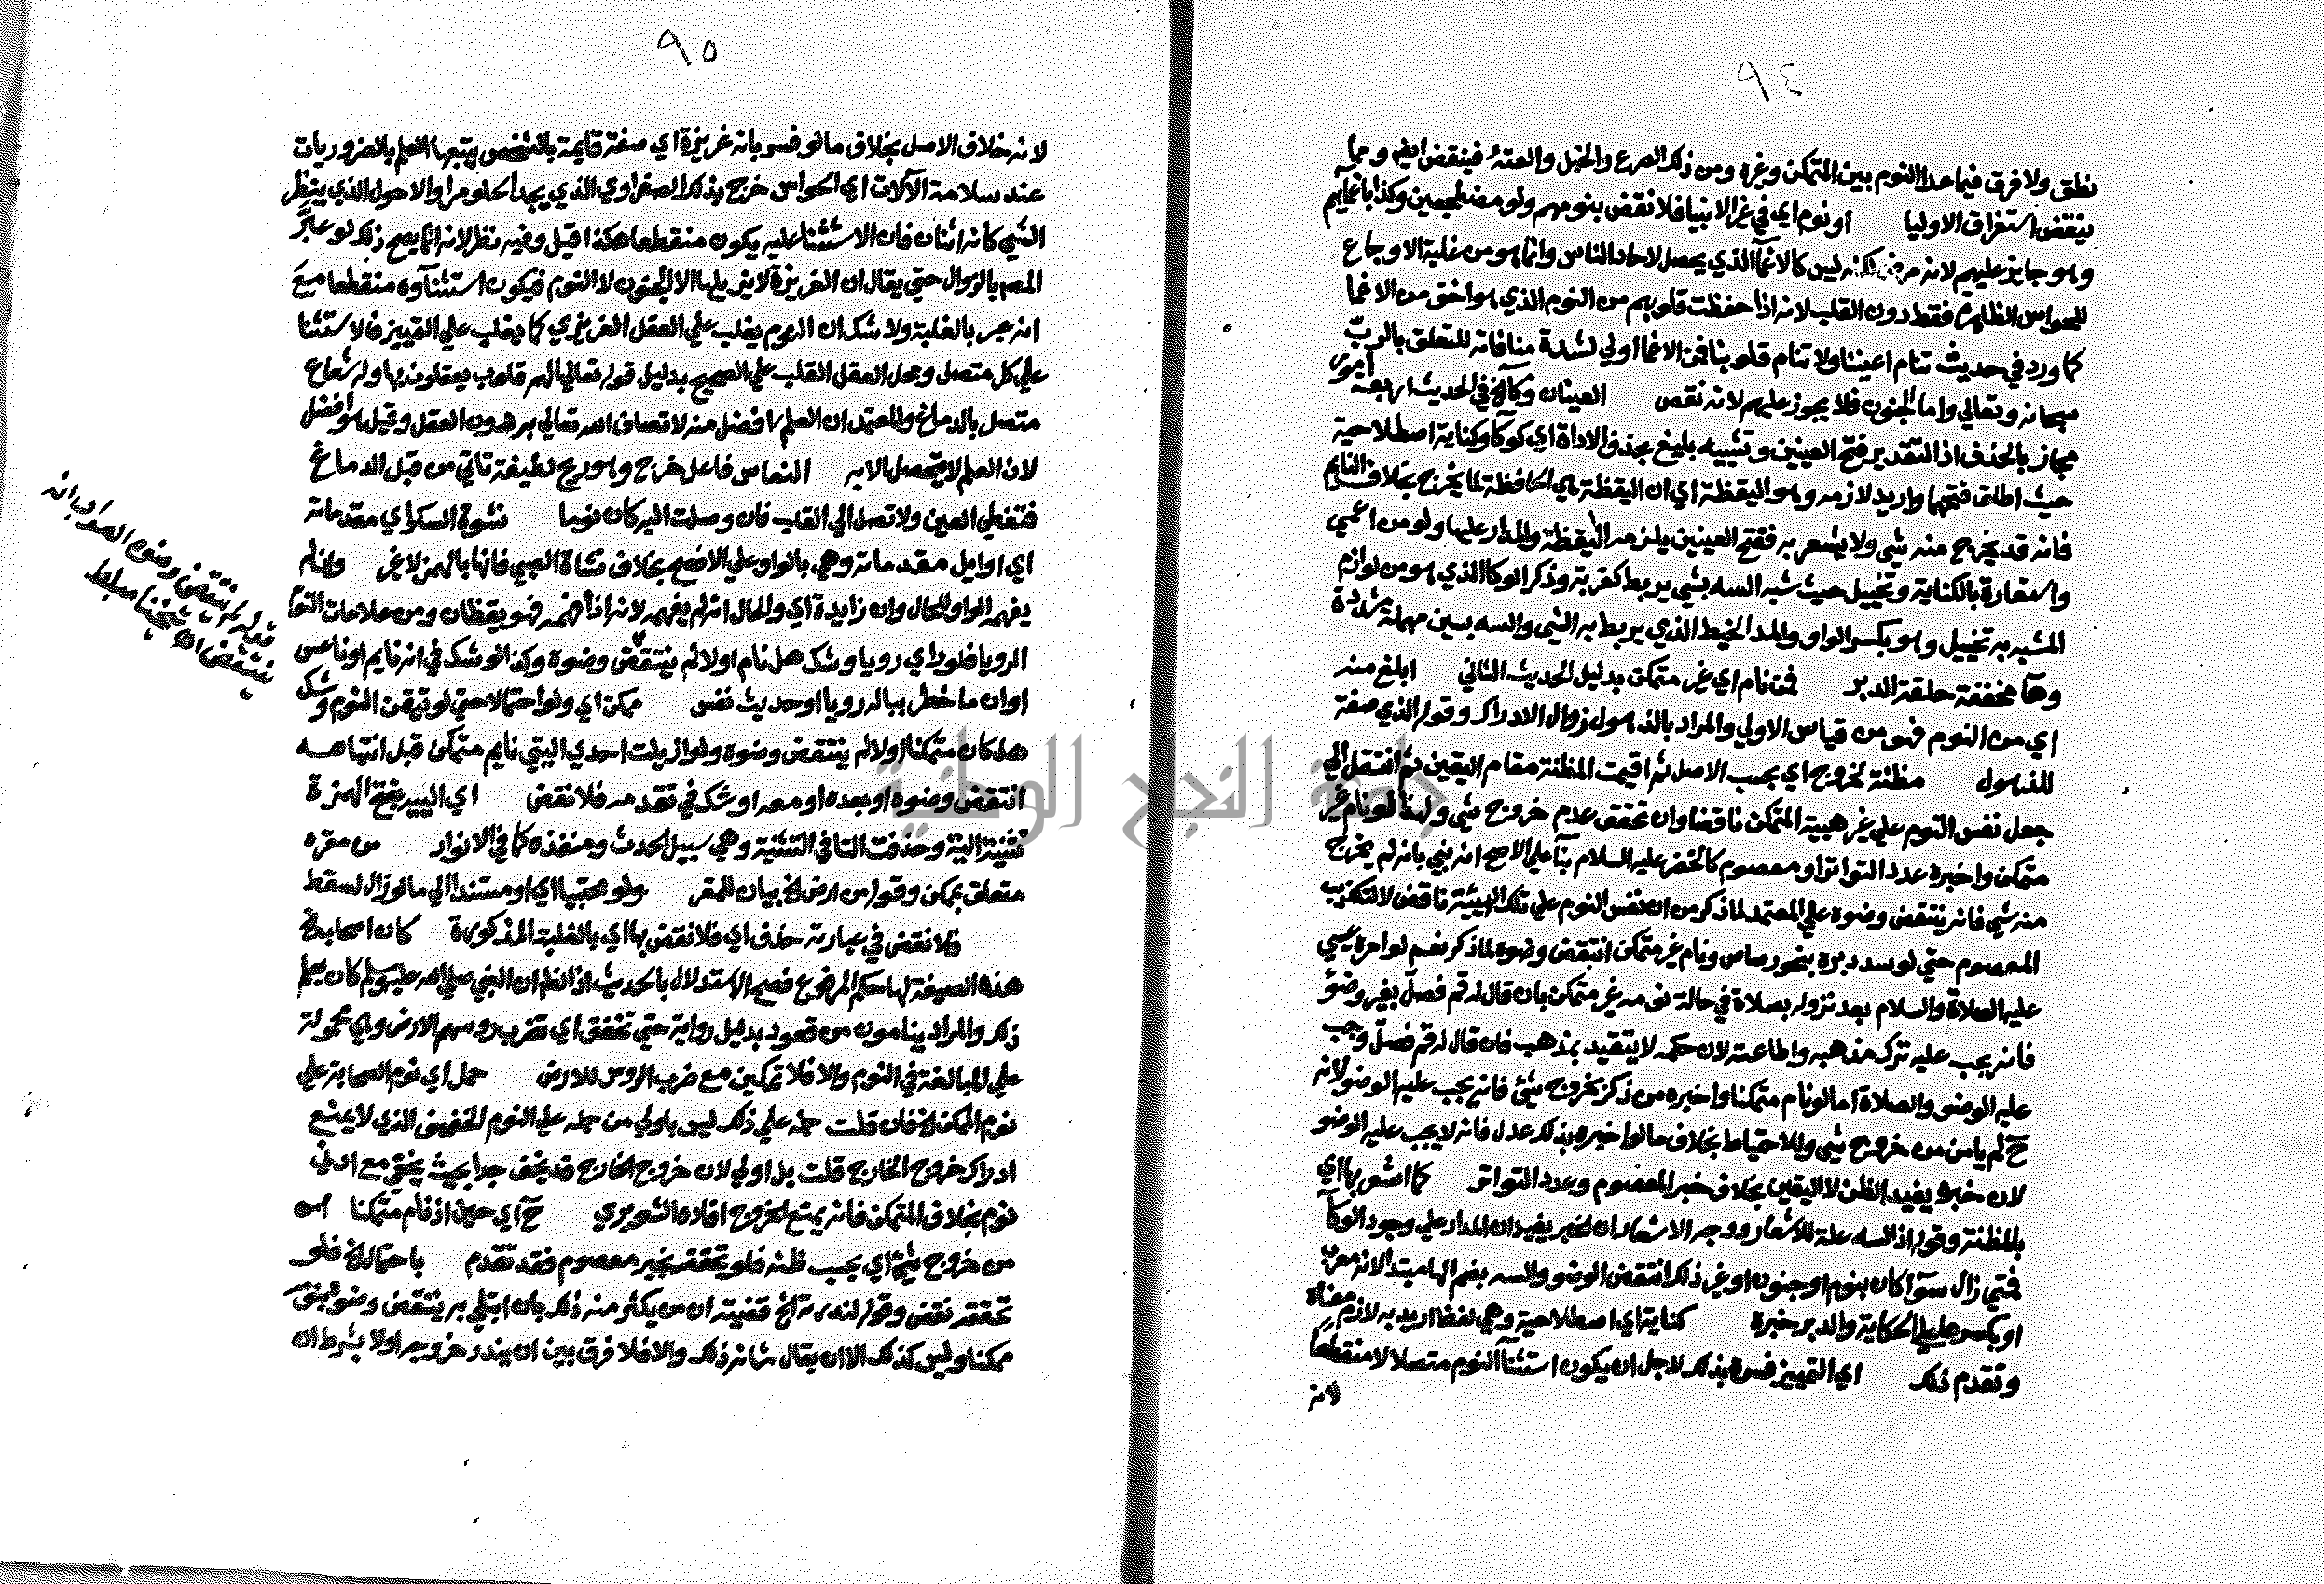 ٩٤
نطق ولا فرق فيما عدا النوم بين المتمكن وغيره ومن ذلك الصرع والخبل والعته فينقض ايضا ومما
ينقض استغراق الاوليا او نوم اي في غير الانبيا فلا نقض بنومهم ولو مضطجعين وكذا باغمايهم
وهو جايز عليهم لانه مرض لكنه ليس كالاغما الذي يحصل لاحاد الناس وانما هو من غلبة الاوجاع
للحواس الظاهرة فقط دون القلب لانه اذا حفظت قلوبهم من النوم الذي هو اخف من الاغما
كما ورد في حديث تنام اعيننا ولا تنام قلوبنا فمن الاغما اولي لشدة منافاته للتعلق بالرب
سبحانه وتعالي واما الجنون فلا يجوز عليهم لانه نقص العينان وكا الخ في الحديث اربعة امور
مجاز بالحذف اذ التقدير فتح العينين وتشبيه بليغ بحذف الاداة اي كوكا وكناية اصطلاحية
حيث اطلق فتحهما واريد لازمه وهو اليقظة اي ان اليقظة هي الحافظة لما يخرج بخلاف النايم
فانه قد يخرج منه شي ولا يشعر به ففتح العينين يلزمه اليقظة والمدار عليها ولو من اعمي
واستعارة بالكناية وتخييل حيث شبه السه بشي يربط كقربة وذكر الوكا الذي هو من لوازم
المشبه به تخييل وهو بكسر الواو والمد الخيط الذي يربط به الشي والسه بسين مهملة مشددة
وها مخففة حلقة الدبر فمن نام اي غير متمكن بدليل الحديث الثاني ابلغ منه
اي من النوم فهو من قياس الاولي والمراد بالذهول زوال الادراك وقوله الذي صفة
للذهول مظنة لخروج اي بحسب الاصل ثم اقيمت المظنة مقام اليقين ثم انتقل الي
جعل نفس النوم علي غير هيية المتمكن ناقضا وان تحقق عدم خروج شي ولهذا لو نام غير
متمكن واخبره عدد التواتر او معصوم كالخضر عليه السلام بنا علي الاصح انه نبي بانه لم يخرج
منه شي فانه ينتقض وضوه علي المعتمد لما ذكر من ان نفس النوم علي تلك الهيئة ناقض لا لتكذيب
المعصوم حتي لو سد دبره بنحو رصاص ونام غير متمكن انتقض وضوه لما ذكر نعم لو امره عيسي
عليه الصلاة والسلام بعد نزوله بصلاة في حالة نومه غير متمكن بان قال له قم فصل بغير وضوء
فانه يجب عليه ترك مذهبه واطاعته لان حكمه لا يتقيد بمذهب فان قال له قم فصل وجب
عليه الوضو والصلاة اما لو نام متمكنا واخبره من ذكر بخروج شئ فانه يجب عليه الوضو لانه
ح لم يامن من خروج شي وللاحتياط بخلاف ما لو اخبره بذلك عدل فانه لا يجب عليه الوضو
لان خبره يفيد الظن لا اليقين بخلاف خبر المعصوم وعدد التواتر كما اشعر بها اي
بالمظنة وقوله اذ السه علة للاشعار ووجه الاشعار ان الخبر يفيد ان المدار علي وجود الوكا
فمتي زال سوا كان بنوم او جنون او غير ذلك انتقض الوضو والسه بضم الها مبتدا لانه معرب
او بكسرها علي الحكاية والدبر خبره كناية اي اصطلاحية وهي لفظ اريد به لازم معناه
وتقدم ذلك اي التمييز فسره بذلك لاجل ان يكون استثنا النوم متصلا لا منقطعا
لانه
٩٥
لانه خلاف الاصل بخلاف ما لو فسر بانه غريزة اي صفة قايمة بالشخص يتبعها العلم بالضروريات
عند سلامة الآلات اي الحواس خرج بذلك الصفراوي الذي يجد الحلو مرا والاحول الذي ينظر
الشي كانه اثنان فان الاستثنا عليه يكون منقطعا هكذا قيل وفيه نظر لانه انما يصح ذلك لو عبر
المص بالزوال حتي يقال ان الغريزة لا يزيلها الا الجنون لا النوم فيكون استثناوه منقطعا مع
انه عبر بالغلبة ولا شك ان النوم يغلب علي العقل الغريزي كما يغلب علي التمييز فالاستثنا
علي كل متصل ومحل العقل القلب علي الصحيح بدليل قوله تعالي لهم قلوب يعقلون بها وله شعاع
متصل بالدماغ والمعتمد ان العلم افضل منه لاتصاف الله تعالي به دون العقل وقيل هو افضل
لان العلم لا يحصل الا به النعاس فاعل خرج وهو ريح لطيفة تاتي من قبل الدماغ
فتغطي العين ولا تصل الي القلب فان وصلت اليه كان نوما نشوة السكر اي مقدماته
اي اوايل مقدماته وهي بالواو علي الافصح بخلاف نشاة الصبي فانها بالهمز لا غير وان لم
يفهمه الواو للحال وان زايدة اي والحال انه لم يفهمه لانه اذا فهمه فهو يقظان ومن علامات النوم
الرويا فلو راي رويا وشك هل نام اولا لم ينتقض وضوه وكذا لو شك في انه نايم او ناعس
او ان ما خطر بباله رويا او حديث نفس ممكن اي ولو احتمالا حتي لو تيقن النوم وشك
هل كان متمكنا اولا لم ينتقض وضوه ولو زيلت احدي اليتي نايم متمكن قبل انتباهه
انتقض وضوه او بعده او معه او شك في تقدمه فلا نقض اي الييه بفتح الهمزة
تثنية الية وحذفت التا في التثنية وهي سبيل الحدث ومنفذه كما في الانوار من مقره
متعلق بممكن وقوله من ارض الخ بيان للمقر ولو محتبيا اي او مستندا الي ما لو زال لسقط
فلا نقض في عبارته حذف اي فلا نقض بها اي بالغلبة المذكورة كان اصحاب الخ
هذه الصيغة لها حكم المرفوع فصح الاستدلال بالحديث اذ الظاهر ان النبي صلي الله عليه وسلم كان يعلم
ذلك والمراد ينامون من قعود بدليل رواية حتي تخفق اي تضرب روسهم الارض وهي محمولة
علي المبالغة في النوم والا فلا تمكين مع ضرب الروس للارض حمل اي نوم الصحابة علي
نوم الممكن الخ فان قلت حمله علي ذلك ليس باولي من حمله علي النوم الخفيف الذي لا يمنع
ادراك خروج الخارج قلت بل اولي لان خروج الخارج قد يخف جدا بحيث يخفي مع ادني
نوم بخلاف المتمكن فانه يمنع الخروج افاده الشوبري ح اي حين اذ نام متمكنا امن
من خروج شي اي بحسب ظنه فلو تحقق بخبر معصوم فقد تقدم باحتمال الخ فلو
تحققه نقض وقوله لندرته الخ قضيته ان من يكثر منه ذلك بان ابتلي به ينتقض وضوه بنومه
ممكنا وليس كذلك الا ان يقال شانه ذلك والا فلا فرق بين ان يندر خروجه اولا بشرط ان
قوله لم ينتقض وضوه الصواب انه
ينتقض اه شيخنا